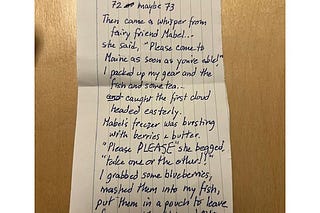 72 maybe 73
Then came a whisper from
fairy friend Mabel...
she said, "Please come to
Maine as soon as you're able!"
I packed up my gear and the
fish and some tea...
and caught the first cloud
headed easterly.
Mabel's freezer was bursting
with berries & butter.
"Please PLEASE" she begged
"take one or the other!!"
I grabbed some blueberries,
mashed them into my fish,
put them in a pouch to leave